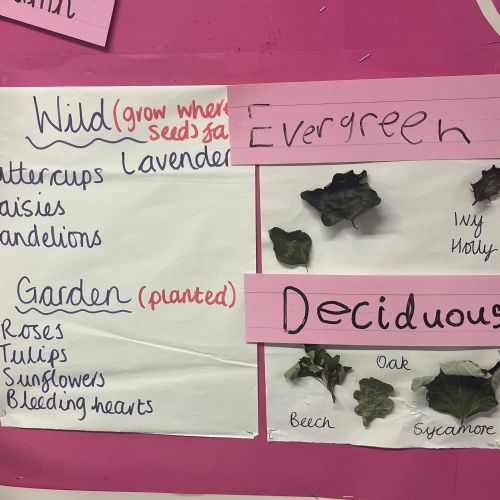 Wild (grow wher
seeds fa
Lavender
uttercups
aisies
andelions
Garden (planted)
Roses
Tulips
Sunflowers
Bleeding hearts
Evergreen
Ivy
Holly
Deciduous
Oak
Beech
Sycamore